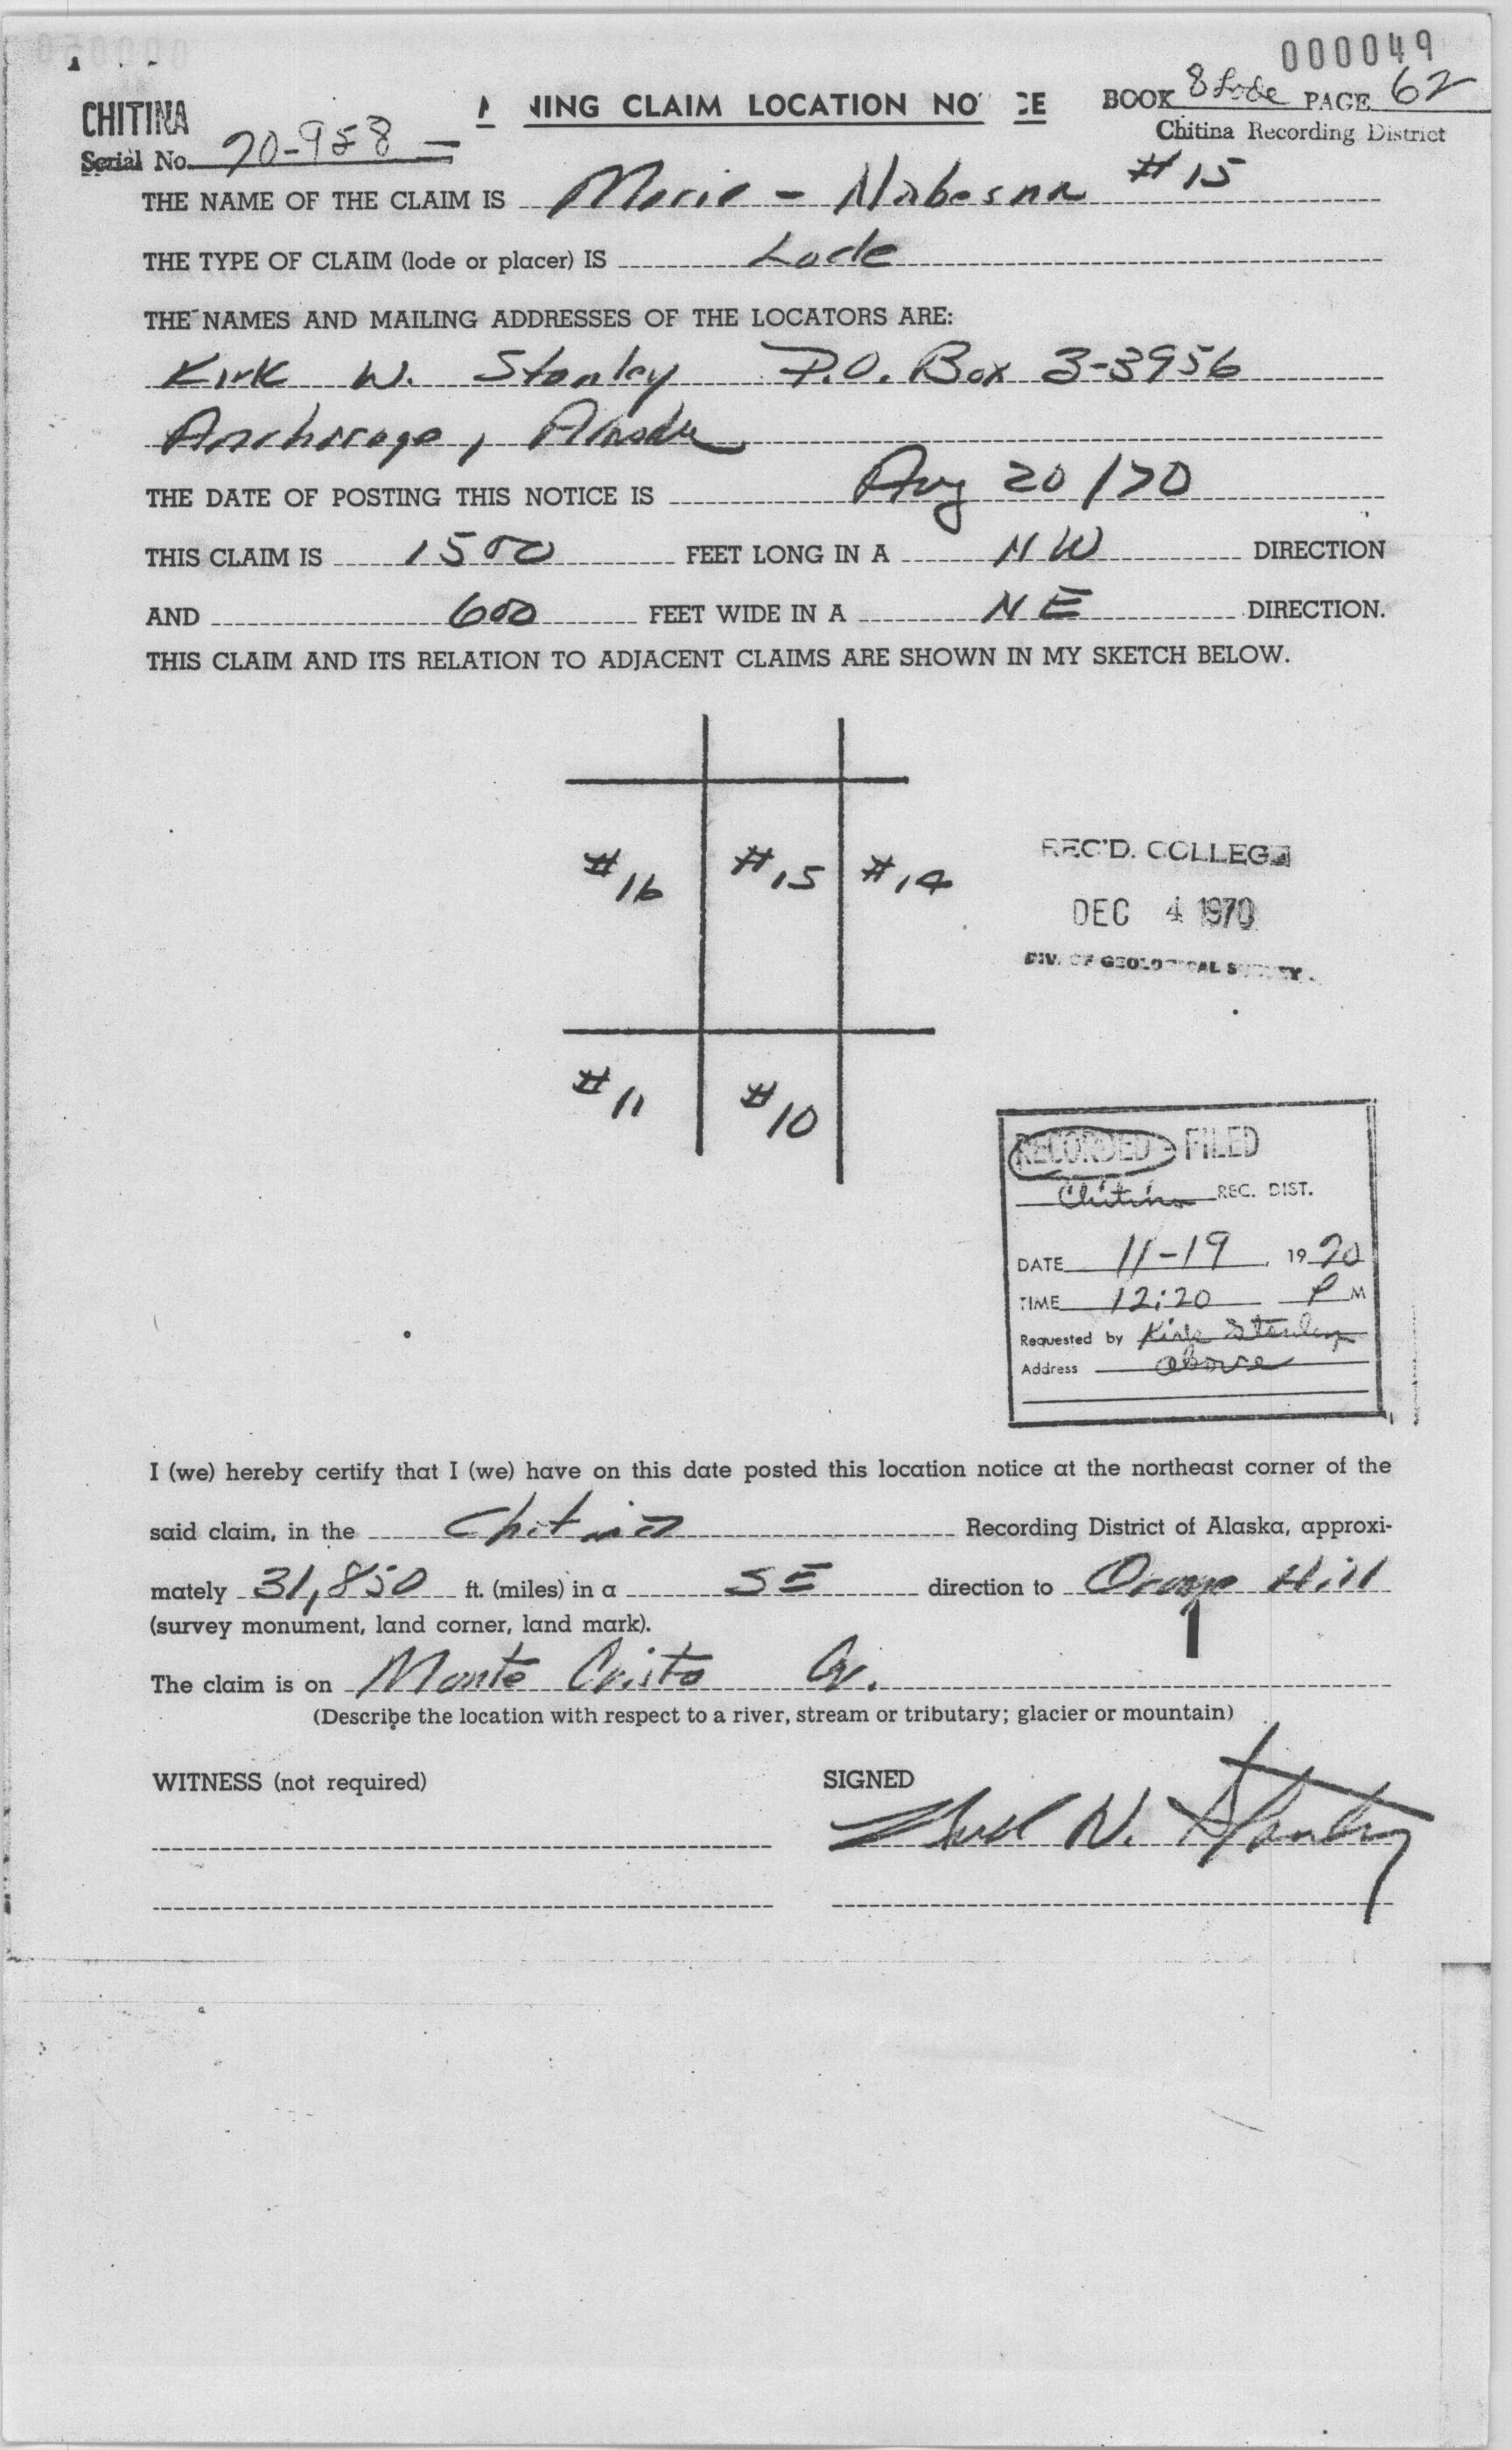 000049
CHITINA
MINING CLAIM LOCATION NOTICE
BOOK 8 Lode PAGE 62
Chitina Recording District
Serial No. 70-958
THE NAME OF THE CLAIM IS Marie - Nabesna #15
THE TYPE OF CLAIM (lode or placer) IS Lode
THE NAMES AND MAILING ADDRESSES OF THE LOCATORS ARE:
Kirk W. Stanley P.O. Box 3-3956
Anchorage, Alaska
THE DATE OF POSTING THIS NOTICE IS Aug 20/70
THIS CLAIM IS 1500 FEET LONG IN A NW DIRECTION
AND 600 FEET WIDE IN A NE DIRECTION.
THIS CLAIM AND ITS RELATION TO ADJACENT CLAIMS ARE SHOWN IN MY SKETCH BELOW.
#16 #15 #14
REC'D. COLLEGE
DEC 4 1970
DIV. OF GEOLOGICAL SURVEY
#11 #10
RECORDED - FILED
Chitina REC. DIST.
DATE 11-19 1970
TIME 12:20 P M
Requested by Kirk Stanley
Address above
I (we) hereby certify that I (we) have on this date posted this location notice at the northeast corner of the
said claim, in the Chitina Recording District of Alaska, approxi-
mately 31,850 ft. (miles) in a SE direction to Orange Hill
(survey monument, land corner, land mark).
The claim is on Monte Cristo Cr.
(Describe the location with respect to a river, stream or tributary; glacier or mountain)
WITNESS (not required) SIGNED
Kirk W. Stanley